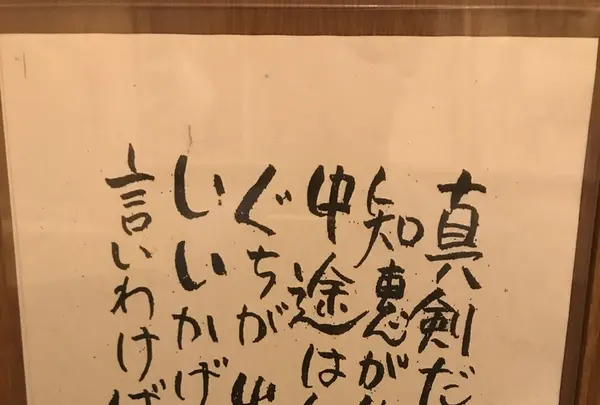 真剣だ
知恵が
中途は
ぐちが
いいかげ
言いわけ